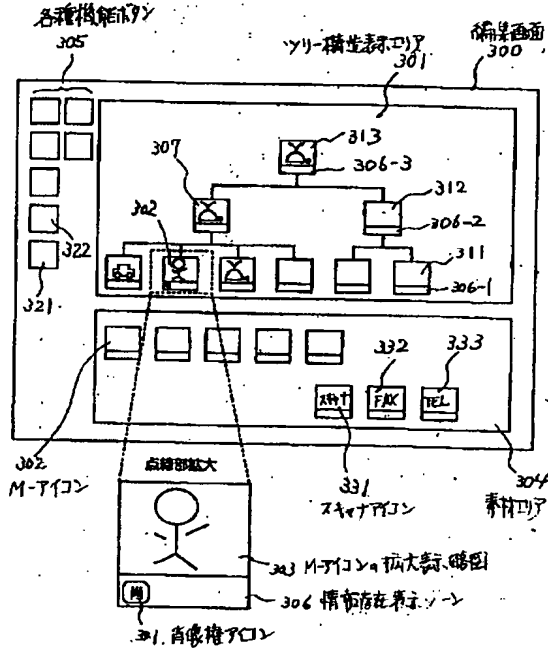 各種機能ボタン
305
ツリー構造表示エリア
301
編集画面
300
313
306-3
307
312
302
306-2
322
311
321
306-1
332
333
スキャナ
FAX
TEL
302
M-アイコン
点線部拡大
331
スキャナアイコン
304
素材エリア
303 M-アイコンの拡大表示、略図
306 情報存在表示ゾーン
肖
肖像権アイコン